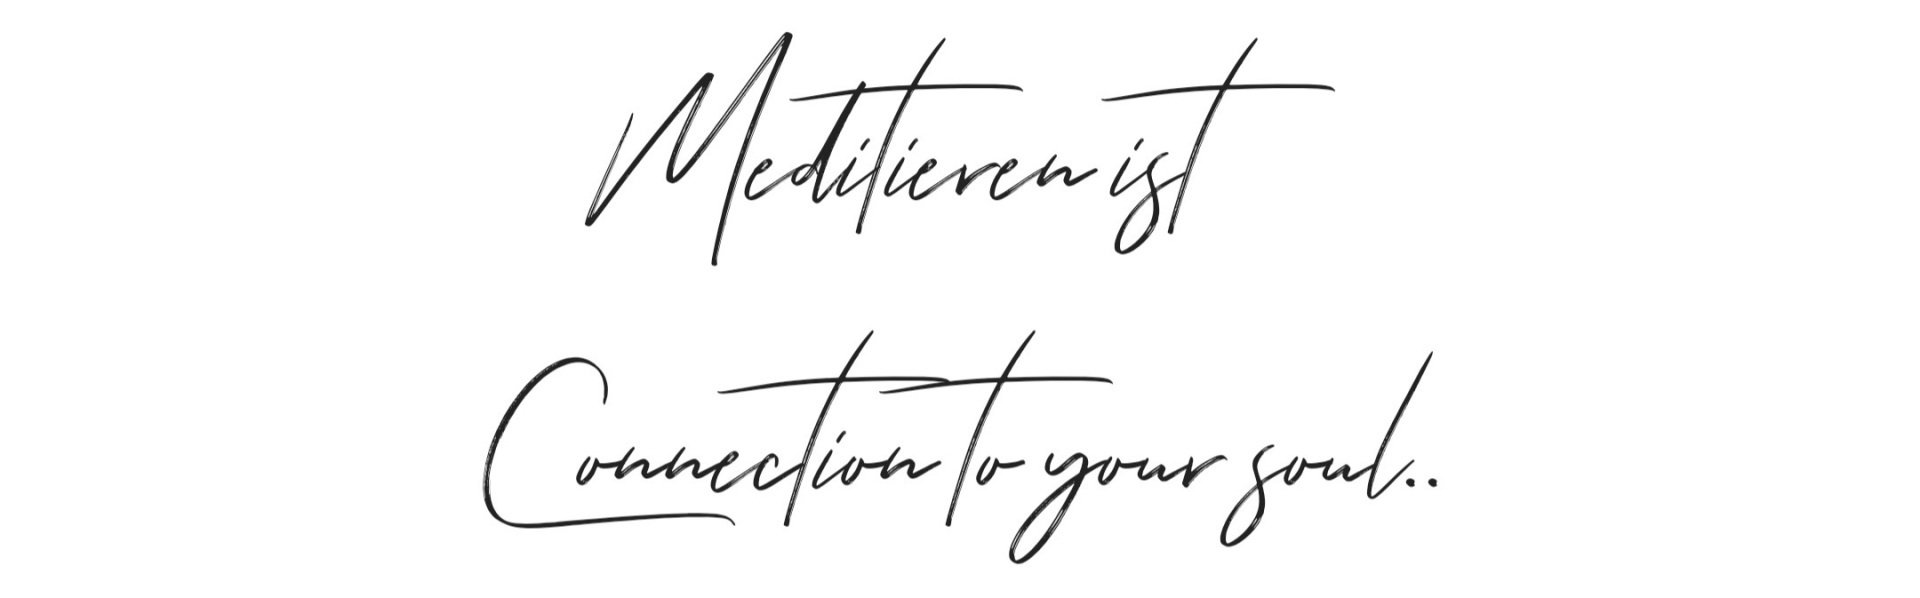 Meditieren ist
Connection to your soul..